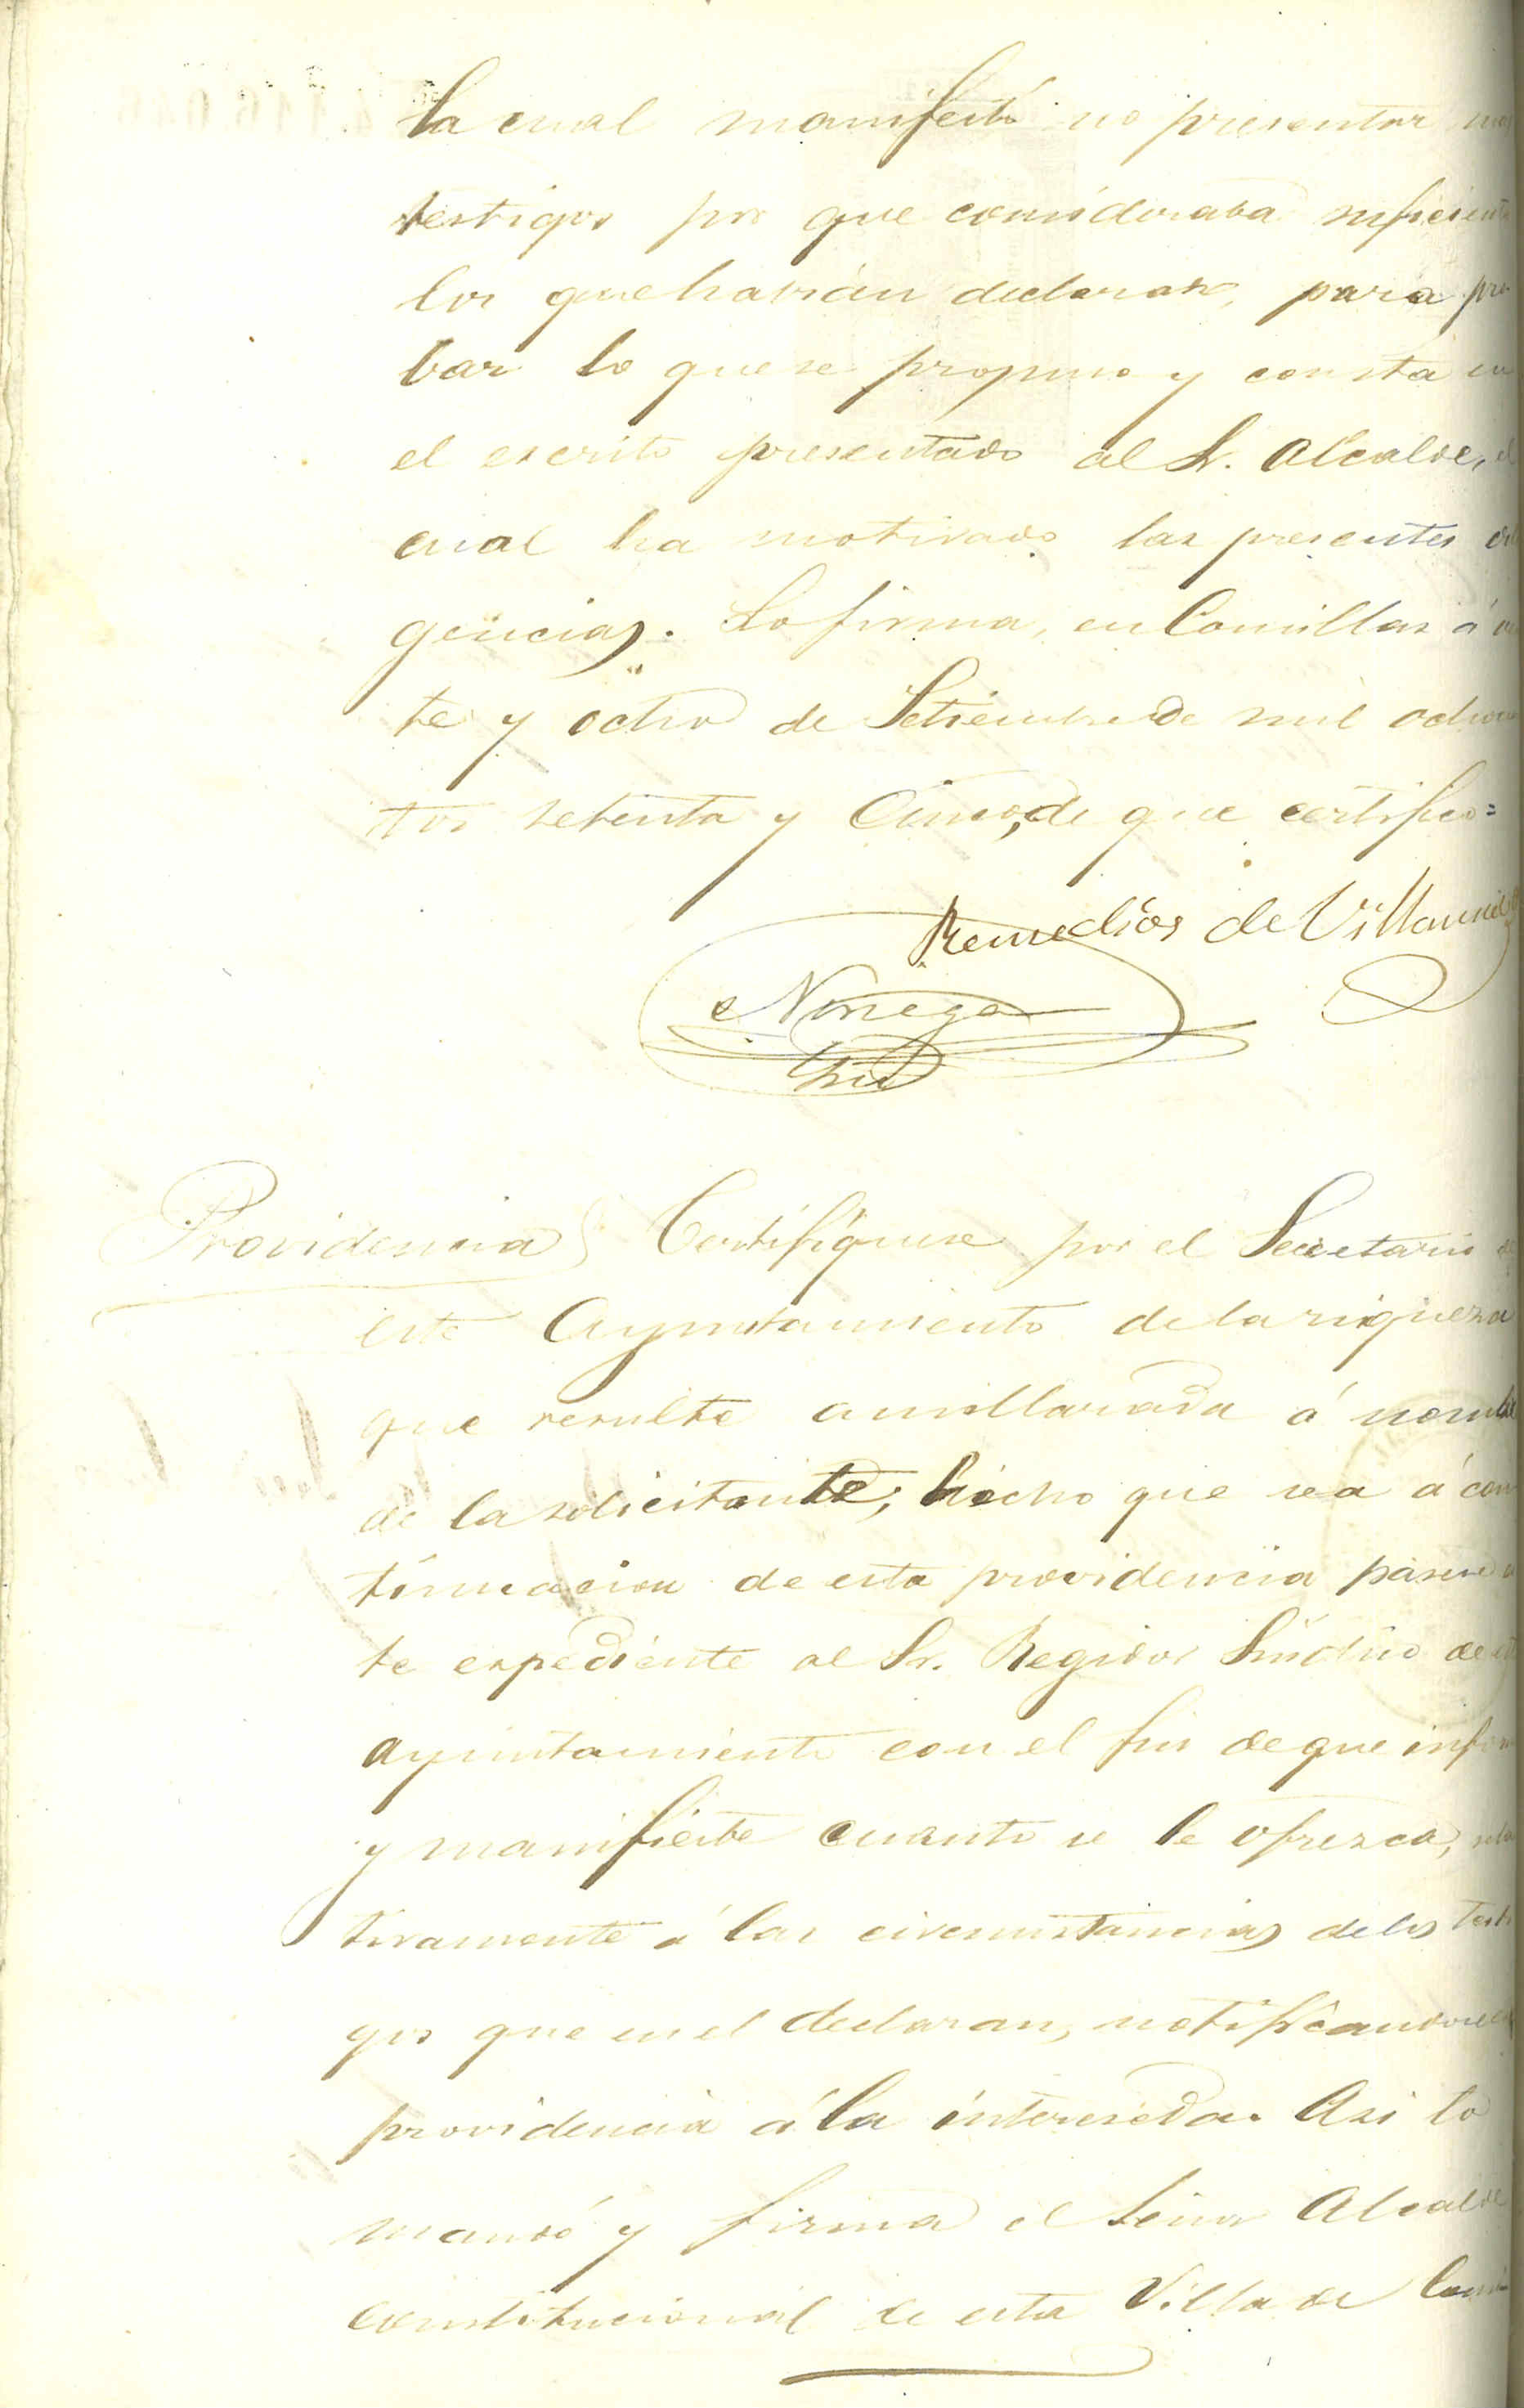 la cual manifestó no presentar mas
testigos por que consideraba suficiente
los que havian declarado, para pro
bar lo que se propuso y consta en
el escrito presentado al Sr. Alcalde, el
cual ha motivado las presentes dili
gencias. Lo firma, en Comillas á vein
te y ocho de Setiembre de mil ochocien
tos setenta y Cinco, de que certifico=
Remedios de Villaun
Noriega
Srio
Providencia Certifíquese por el Secretario de
este Ayuntamiento de la riqueza
que resulte amillarada á nombre
de la solicitante, hecho que sea á con
tinuacion de esta providencia pasese es
te expediente al Sr. Regidor Síndico de este
ayuntamiento con el fin de que informe
y manifieste cuanto se le ofrezca, rela
tivamente á las circunstancias de los testi
gos que en el declaran, notificandose esta
providencia á la interesada. Asi lo
mandó y firma el Señor Alcalde
constitucional de esta Villa de Comi